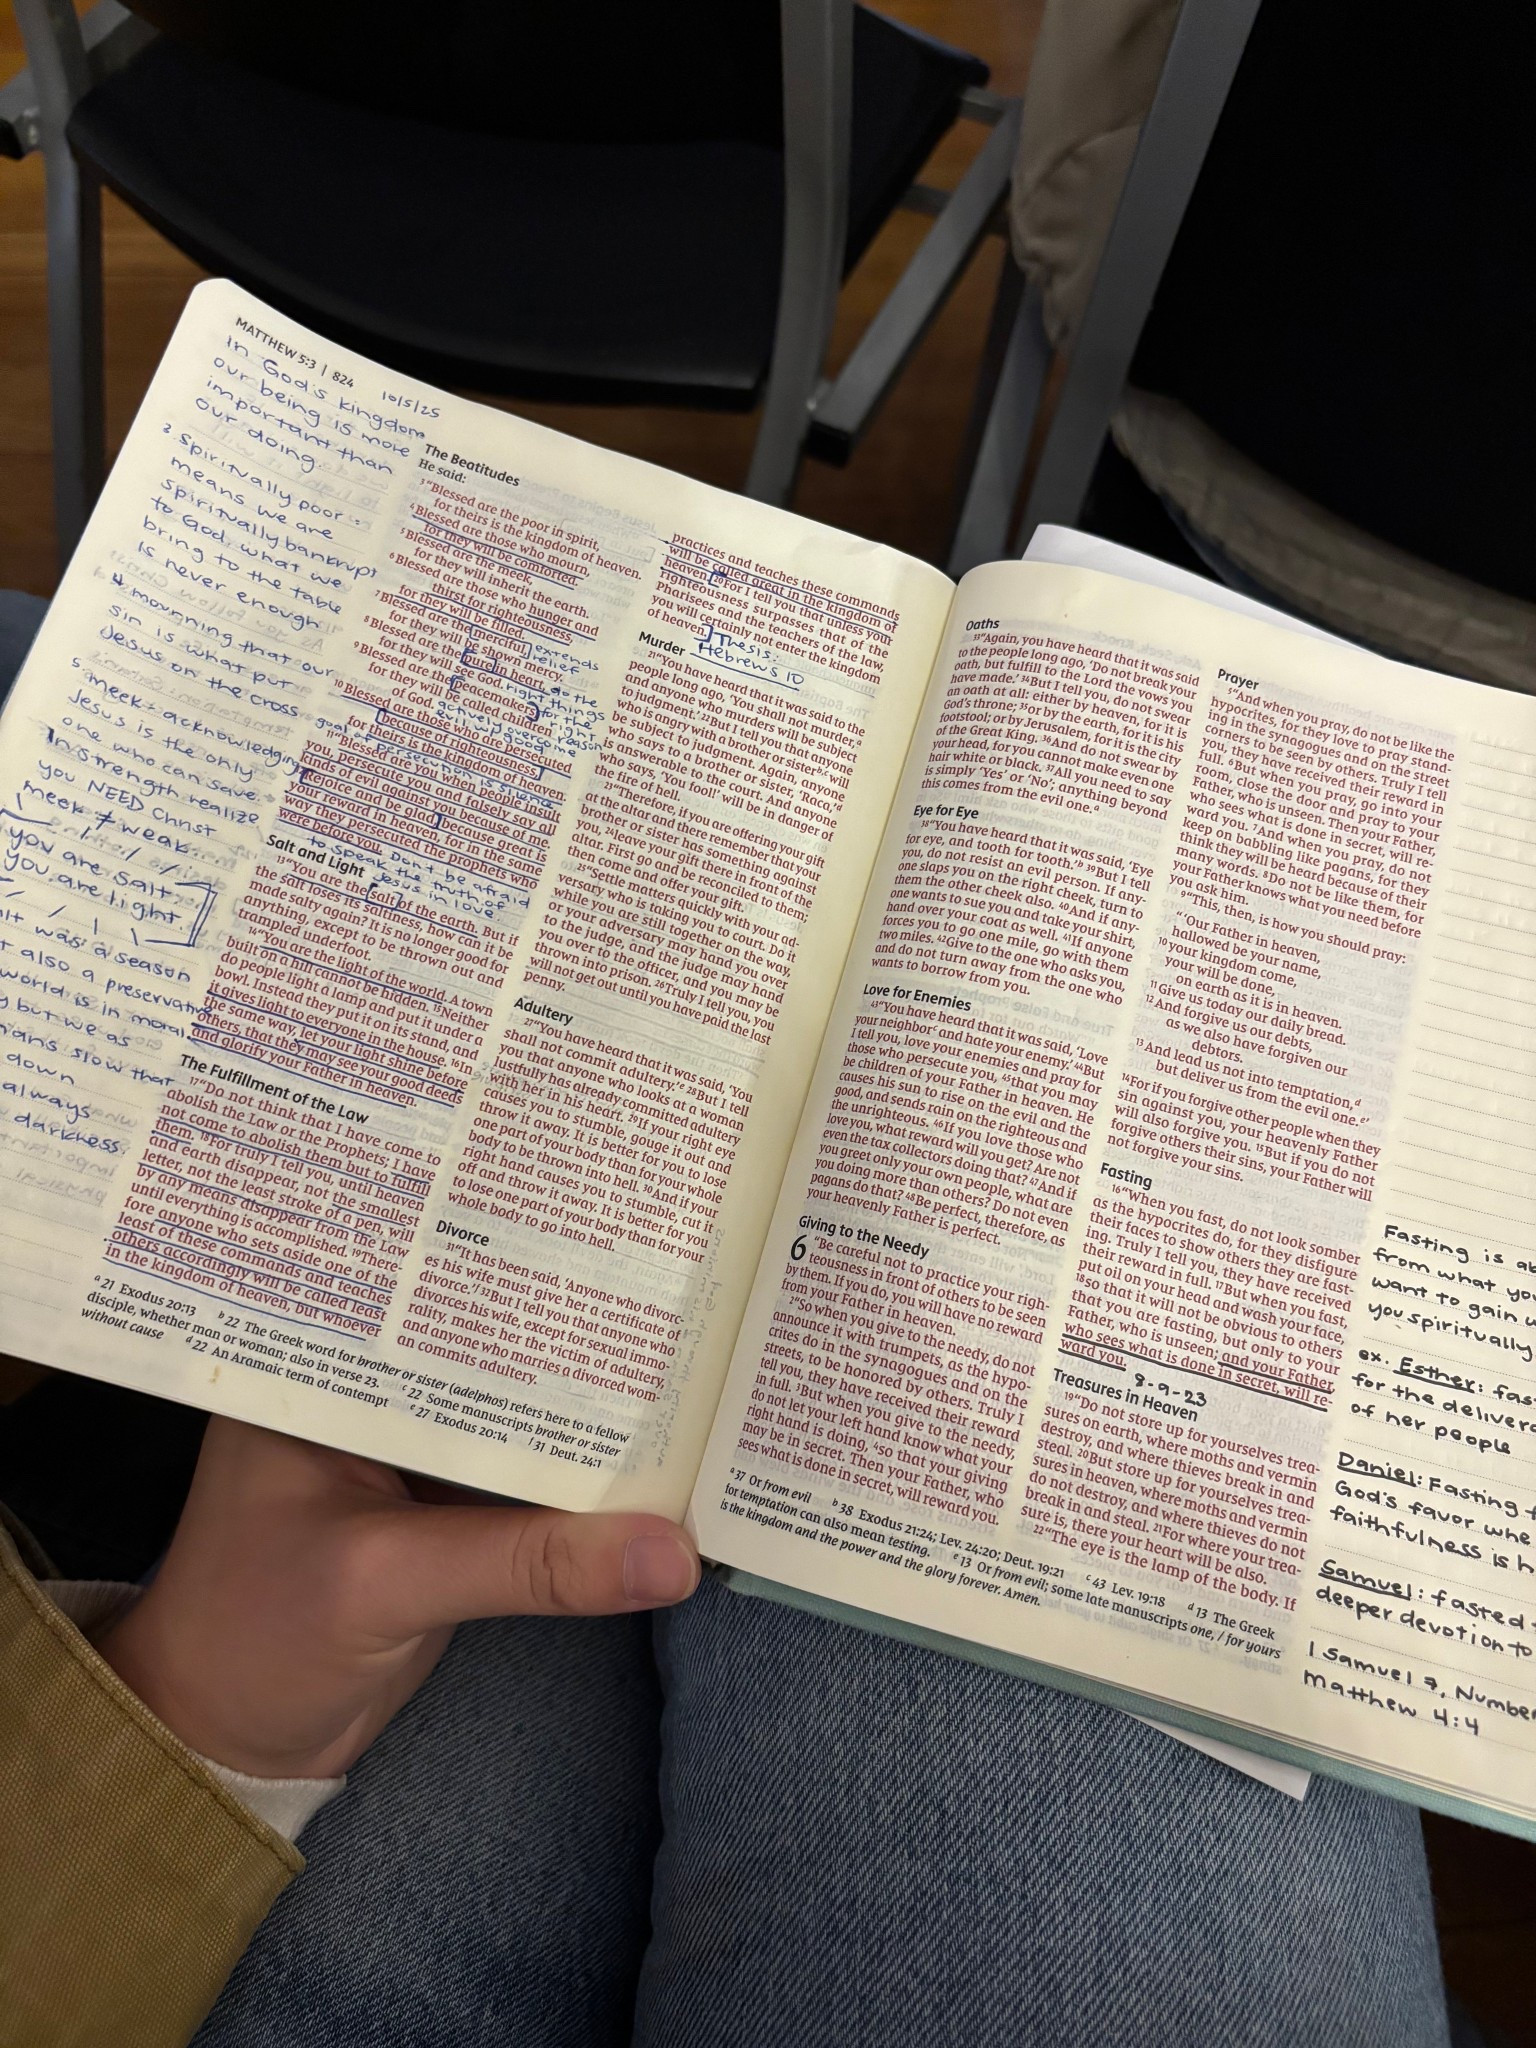 MATTHEW 5:3 | 824
10/5/25
In God's kingdom
our being is more
important than
our doing.
spiritually poor:
means we are
spiritually bankrupt
to God, what we
bring to the table
is never enough
4 mourning that our
sin is what put
Jesus on the cross
5 meek: acknowledging
Jesus is the only
one who can save.
In strength realize
you NEED Christ
meek ≠ weak
you are salt
you are light
was a season
also a preservative
world is in moral
but we as
slow that
down
always
darkness.
The Beatitudes
He said:
3 "Blessed are the poor in spirit,
for theirs is the kingdom of heaven.
4 Blessed are those who mourn,
for they will be comforted.
5 Blessed are the meek,
for they will inherit the earth.
6 Blessed are those who hunger and
thirst for righteousness,
for they will be filled.
7 Blessed are the merciful,
for they will be shown mercy.
extends
relief
8 Blessed are the pure in heart,
for they will see God.
do the
right things
for the
right
reason
9 Blessed are the peacemakers,
for they will be called children
of God.
actively overcome
evil w/ good
10 Blessed are those who are persecuted
because of righteousness,
for theirs is the kingdom of heaven.
goal of persecution is silence
11 "Blessed are you when people insult
you, persecute you and falsely say all
kinds of evil against you because of me.
12 Rejoice and be glad, because great is
your reward in heaven, for in the same
way they persecuted the prophets who
were before you.
Don't be afraid
to speak the truth of
Jesus in love
Salt and Light
13 "You are the salt of the earth. But if
the salt loses its saltiness, how can it be
made salty again? It is no longer good for
anything, except to be thrown out and
trampled underfoot.
14 "You are the light of the world. A town
built on a hill cannot be hidden. 15 Neither
do people light a lamp and put it under a
bowl. Instead they put it on its stand, and
it gives light to everyone in the house. 16 In
the same way, let your light shine before
others, that they may see your good deeds
and glorify your Father in heaven.
The Fulfillment of the Law
17 "Do not think that I have come to
abolish the Law or the Prophets; I have
not come to abolish them but to fulfill
them. 18 For truly I tell you, until heaven
and earth disappear, not the smallest
letter, not the least stroke of a pen, will
by any means disappear from the Law
until everything is accomplished. 19 There-
fore anyone who sets aside one of the
least of these commands and teaches
others accordingly will be called least
in the kingdom of heaven, but whoever
practices and teaches these commands
will be called great in the kingdom of
heaven. 20 For I tell you that unless your
righteousness surpasses that of the
Pharisees and the teachers of the law,
you will certainly not enter the kingdom
of heaven.
Thesis:
Hebrews 10
Murder
21 "You have heard that it was said to the
people long ago, 'You shall not murder, a
and anyone who murders will be subject
to judgment.' 22 But I tell you that anyone
who is angry with a brother or sister b,c will
be subject to judgment. Again, anyone
who says to a brother or sister, 'Raca,' d
is answerable to the court. And anyone
who says, 'You fool!' will be in danger of
the fire of hell.
23 "Therefore, if you are offering your gift
at the altar and there remember that your
brother or sister has something against
you, 24 leave your gift there in front of the
altar. First go and be reconciled to them;
then come and offer your gift.
25 "Settle matters quickly with your ad-
versary who is taking you to court. Do it
while you are still together on the way,
or your adversary may hand you over
to the judge, and the judge may hand
you over to the officer, and you may be
thrown into prison. 26 Truly I tell you, you
will not get out until you have paid the last
penny.
Adultery
27 "You have heard that it was said, 'You
shall not commit adultery.' e 28 But I tell
you that anyone who looks at a woman
lustfully has already committed adultery
with her in his heart. 29 If your right eye
causes you to stumble, gouge it out and
throw it away. It is better for you to lose
one part of your body than for your whole
body to be thrown into hell. 30 And if your
right hand causes you to stumble, cut it
off and throw it away. It is better for you
to lose one part of your body than for your
whole body to go into hell.
Divorce
31 "It has been said, 'Anyone who divorc-
es his wife must give her a certificate of
divorce.' f 32 But I tell you that anyone who
divorces his wife, except for sexual immo-
rality, makes her the victim of adultery,
and anyone who marries a divorced wom-
an commits adultery.
a 21 Exodus 20:13 b 22 The Greek word for brother or sister (adelphos) refers here to a fellow
disciple, whether man or woman; also in verse 23. c 22 Some manuscripts brother or sister
without cause d 22 An Aramaic term of contempt e 27 Exodus 20:14 f 31 Deut. 24:1
Oaths
33 "Again, you have heard that it was said
to the people long ago, 'Do not break your
oath, but fulfill to the Lord the vows you
have made.' 34 But I tell you, do not swear
an oath at all: either by heaven, for it is
God's throne; 35 or by the earth, for it is his
footstool; or by Jerusalem, for it is the city
of the Great King. 36 And do not swear by
your head, for you cannot make even one
hair white or black. 37 All you need to say
is simply 'Yes' or 'No'; anything beyond
this comes from the evil one. a
Eye for Eye
38 "You have heard that it was said, 'Eye
for eye, and tooth for tooth.' b 39 But I tell
you, do not resist an evil person. If any-
one slaps you on the right cheek, turn to
them the other cheek also. 40 And if any-
one wants to sue you and take your shirt,
hand over your coat as well. 41 If anyone
forces you to go one mile, go with them
two miles. 42 Give to the one who asks you,
and do not turn away from the one who
wants to borrow from you.
Love for Enemies
43 "You have heard that it was said, 'Love
your neighbor c and hate your enemy.' 44 But
I tell you, love your enemies and pray for
those who persecute you, 45 that you may
be children of your Father in heaven. He
causes his sun to rise on the evil and the
good, and sends rain on the righteous and
the unrighteous. 46 If you love those who
love you, what reward will you get? Are not
even the tax collectors doing that? 47 And if
you greet only your own people, what are
you doing more than others? Do not even
pagans do that? 48 Be perfect, therefore, as
your heavenly Father is perfect.
Giving to the Needy
6 "Be careful not to practice your righ-
teousness in front of others to be seen
by them. If you do, you will have no reward
from your Father in heaven.
2 "So when you give to the needy, do not
announce it with trumpets, as the hypo-
crites do in the synagogues and on the
streets, to be honored by others. Truly I
tell you, they have received their reward
in full. 3 But when you give to the needy,
do not let your left hand know what your
right hand is doing, 4 so that your giving
may be in secret. Then your Father, who
sees what is done in secret, will reward you.
Prayer
5 "And when you pray, do not be like the
hypocrites, for they love to pray stand-
ing in the synagogues and on the street
corners to be seen by others. Truly I tell
you, they have received their reward in
full. 6 But when you pray, go into your
room, close the door and pray to your
Father, who is unseen. Then your Father,
who sees what is done in secret, will re-
ward you. 7 And when you pray, do not
keep on babbling like pagans, for they
think they will be heard because of their
many words. 8 Do not be like them, for
your Father knows what you need before
you ask him.
9 "This, then, is how you should pray:
" 'Our Father in heaven,
hallowed be your name,
10 your kingdom come,
your will be done,
on earth as it is in heaven.
11 Give us today our daily bread.
12 And forgive us our debts,
as we also have forgiven our
debtors.
13 And lead us not into temptation, d
but deliver us from the evil one. e'
14 For if you forgive other people when they
sin against you, your heavenly Father
will also forgive you. 15 But if you do not
forgive others their sins, your Father will
not forgive your sins.
Fasting
16 "When you fast, do not look somber
as the hypocrites do, for they disfigure
their faces to show others they are fast-
ing. Truly I tell you, they have received
their reward in full. 17 But when you fast,
put oil on your head and wash your face,
18 so that it will not be obvious to others
that you are fasting, but only to your
Father, who is unseen; and your Father,
who sees what is done in secret, will re-
ward you.
8-9-23
Treasures in Heaven
19 "Do not store up for yourselves trea-
sures on earth, where moths and vermin
destroy, and where thieves break in and
steal. 20 But store up for yourselves trea-
sures in heaven, where moths and vermin
do not destroy, and where thieves do not
break in and steal. 21 For where your trea-
sure is, there your heart will be also.
22 "The eye is the lamp of the body. If
a 37 Or from evil b 38 Exodus 21:24; Lev. 24:20; Deut. 19:21 c 43 Lev. 19:18 d 13 The Greek
for temptation can also mean testing. e 13 Or from evil; some late manuscripts one, / for yours
is the kingdom and the power and the glory forever. Amen.
Fasting is
from what
want to gain
you spiritually
ex. Esther:
for the
of her people
Daniel: Fasting
God's favor
faithfulness is
Samuel: fasted
deeper devotion to
1 Samuel 7,
Matthew 4:4